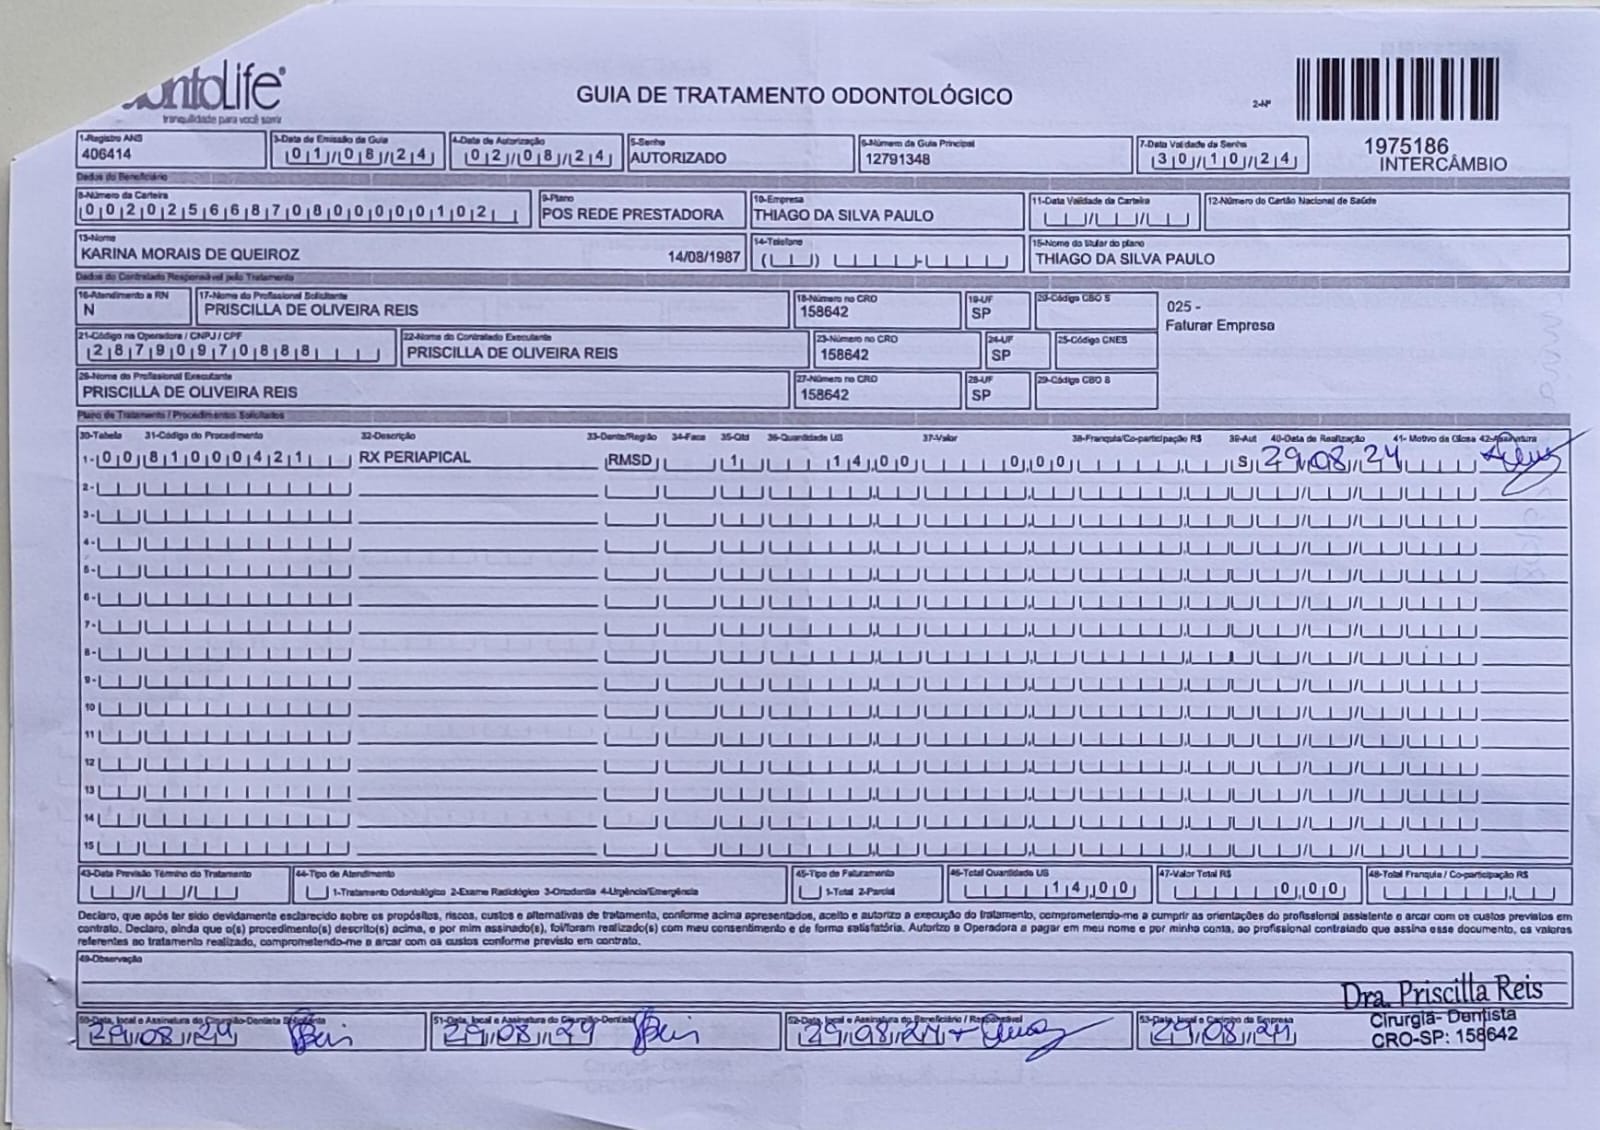 ontoLife®
tranquilidade para você sorrir
GUIA DE TRATAMENTO ODONTOLÓGICO
2-Nº
1975186
INTERCÂMBIO
1-Registro ANS
406414
3-Data de Emissão da Guia
01/08/24
4-Data de Autorização
02/08/24
5-Senha
AUTORIZADO
6-Número da Guia Principal
12791348
7-Data Validade da Senha
30/10/24
Dados do Beneficiário
8-Número da Carteira
00202566870800000102
9-Plano
POS REDE PRESTADORA
10-Empresa
THIAGO DA SILVA PAULO
11-Data Validade da Carteira
12-Número do Cartão Nacional de Saúde
13-Nome
KARINA MORAIS DE QUEIROZ 14/08/1987
14-Telefone
15-Nome do titular do plano
THIAGO DA SILVA PAULO
Dados do Contratado Responsável pelo Tratamento
16-Atendimento a RN
N
17-Nome do Profissional Solicitante
PRISCILLA DE OLIVEIRA REIS
18-Número no CRO
158642
19-UF
SP
20-Código CBO S
025 -
Faturar Empresa
21-Código na Operadora / CNPJ / CPF
28790970888
22-Nome do Contratado Executante
PRISCILLA DE OLIVEIRA REIS
23-Número no CRO
158642
24-UF
SP
25-Código CNES
26-Nome do Profissional Executante
PRISCILLA DE OLIVEIRA REIS
27-Número no CRO
158642
28-UF
SP
29-Código CBO S
Plano de Tratamento / Procedimentos Solicitados
30-Tabela 31-Código do Procedimento 32-Descrição 33-Dente/Região 34-Face 35-Qtd 36-Quantidade US 37-Valor 38-Franquia/Co-participação R$ 39-Aut 40-Data de Realização 41- Motivo da Glosa 42-Assinatura
1-00 81000421 RX PERIAPICAL RMSD 1 14,00 0,00 S 29/08/24
2-
3-
4-
5-
6-
7-
8-
9-
10
11
12
13
14
15
43-Data Previsão Término do Tratamento
44-Tipo de Atendimento
1-Tratamento Odontológico 2-Exame Radiológico 3-Ortodontia 4-Urgência/Emergência
45-Tipo de Faturamento
1-Total 2-Parcial
46-Total Quantidade US
14,00
47-Valor Total R$
0,00
48-Total Franquia / Co-participação R$
Declaro, que após ter sido devidamente esclarecido sobre os propósitos, riscos, custos e alternativas de tratamento, conforme acima apresentados, aceito e autorizo a execução do tratamento, comprometendo-me a cumprir as orientações do profissional assistente e arcar com os custos previstos em
contrato. Declaro, ainda que o(s) procedimento(s) descrito(s) acima, e por mim assinado(s), foi/foram realizado(s) com meu consentimento e de forma satisfatória. Autorizo a Operadora a pagar em meu nome e por minha conta, ao profissional contratado que assina esse documento, os valores
referentes ao tratamento realizado, comprometendo-me a arcar com os custos conforme previsto em contrato.
49-Observação
Dra. Priscilla Reis
Cirurgiã- Dentista
CRO-SP: 158642
50-Data, local e Assinatura do Cirurgião-Dentista Solicitante
29/08/24
51-Data, local e Assinatura do Cirurgião-Dentista
29/08/24
52-Data, local e Assinatura do Beneficiário / Responsável
29/08/24
53-Data, local e Carimbo da Empresa
29/08/24